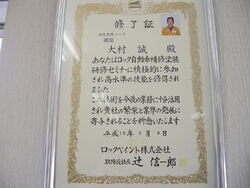 修了証
誠殿
大村 誠 殿
あなたはロック自動車補修塗装
研修セミナーに積極的に参加
され高水準の技能を修得されまし
た
この技術を今後の業務に十分活用
され貴社の繁栄と業界の発展に
寄与されることを祈念いたします
平成
ロックペイント株式会社
取締役社長 辻 信一郎